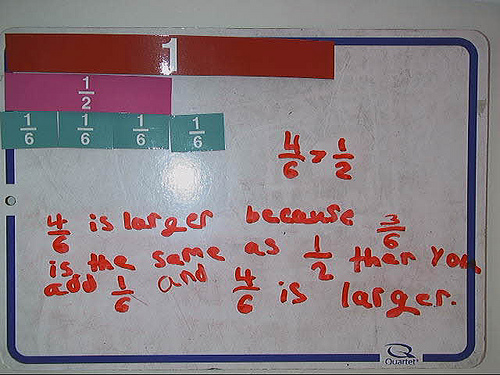 1
1/2
1/6 1/6 1/6 1/6
4/6 > 1/2
4/6 is larger because 3/6
is the same as 1/2 then you
add 1/6 and 4/6 is larger.
Quartet